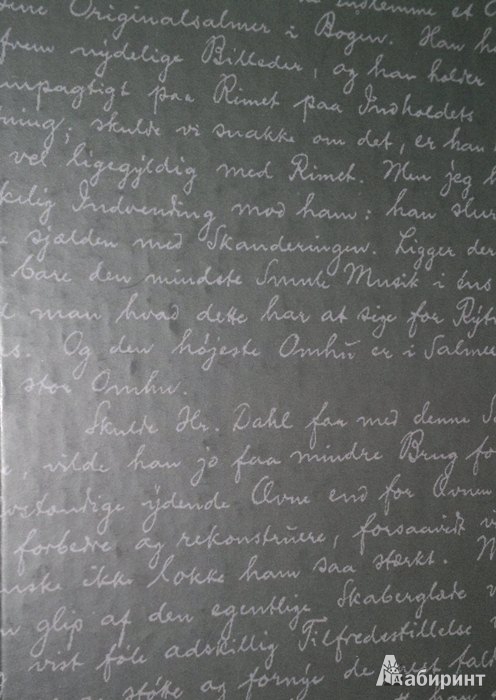 Originalsalmer i Bogen. Han
frem nydelige Billeder, og han holder
paa Rimet paa Indholdets
skulde vi snakke om det, er han
vel ligegyldig med Rimet. Men jeg
Indvending mod ham: han
sjælden med Skanderingen. Ligger der
bare den mindste Smule Musik i éns
man hvad dette har at sige for
Og den højeste Omhu er i
stor Omhu.
Skulde Hr. Dahl faa med denne
vilde han jo faa mindre Brug
ydende Ævne end for Ævnen
forbedre og rekonstruere, forsaavidt
ikke lokke ham saa stærkt.
glip af den egentlige Skaberglæde
vist føle adskillig Tilfredsstillelse
støtte og fornye de
Лабиринт